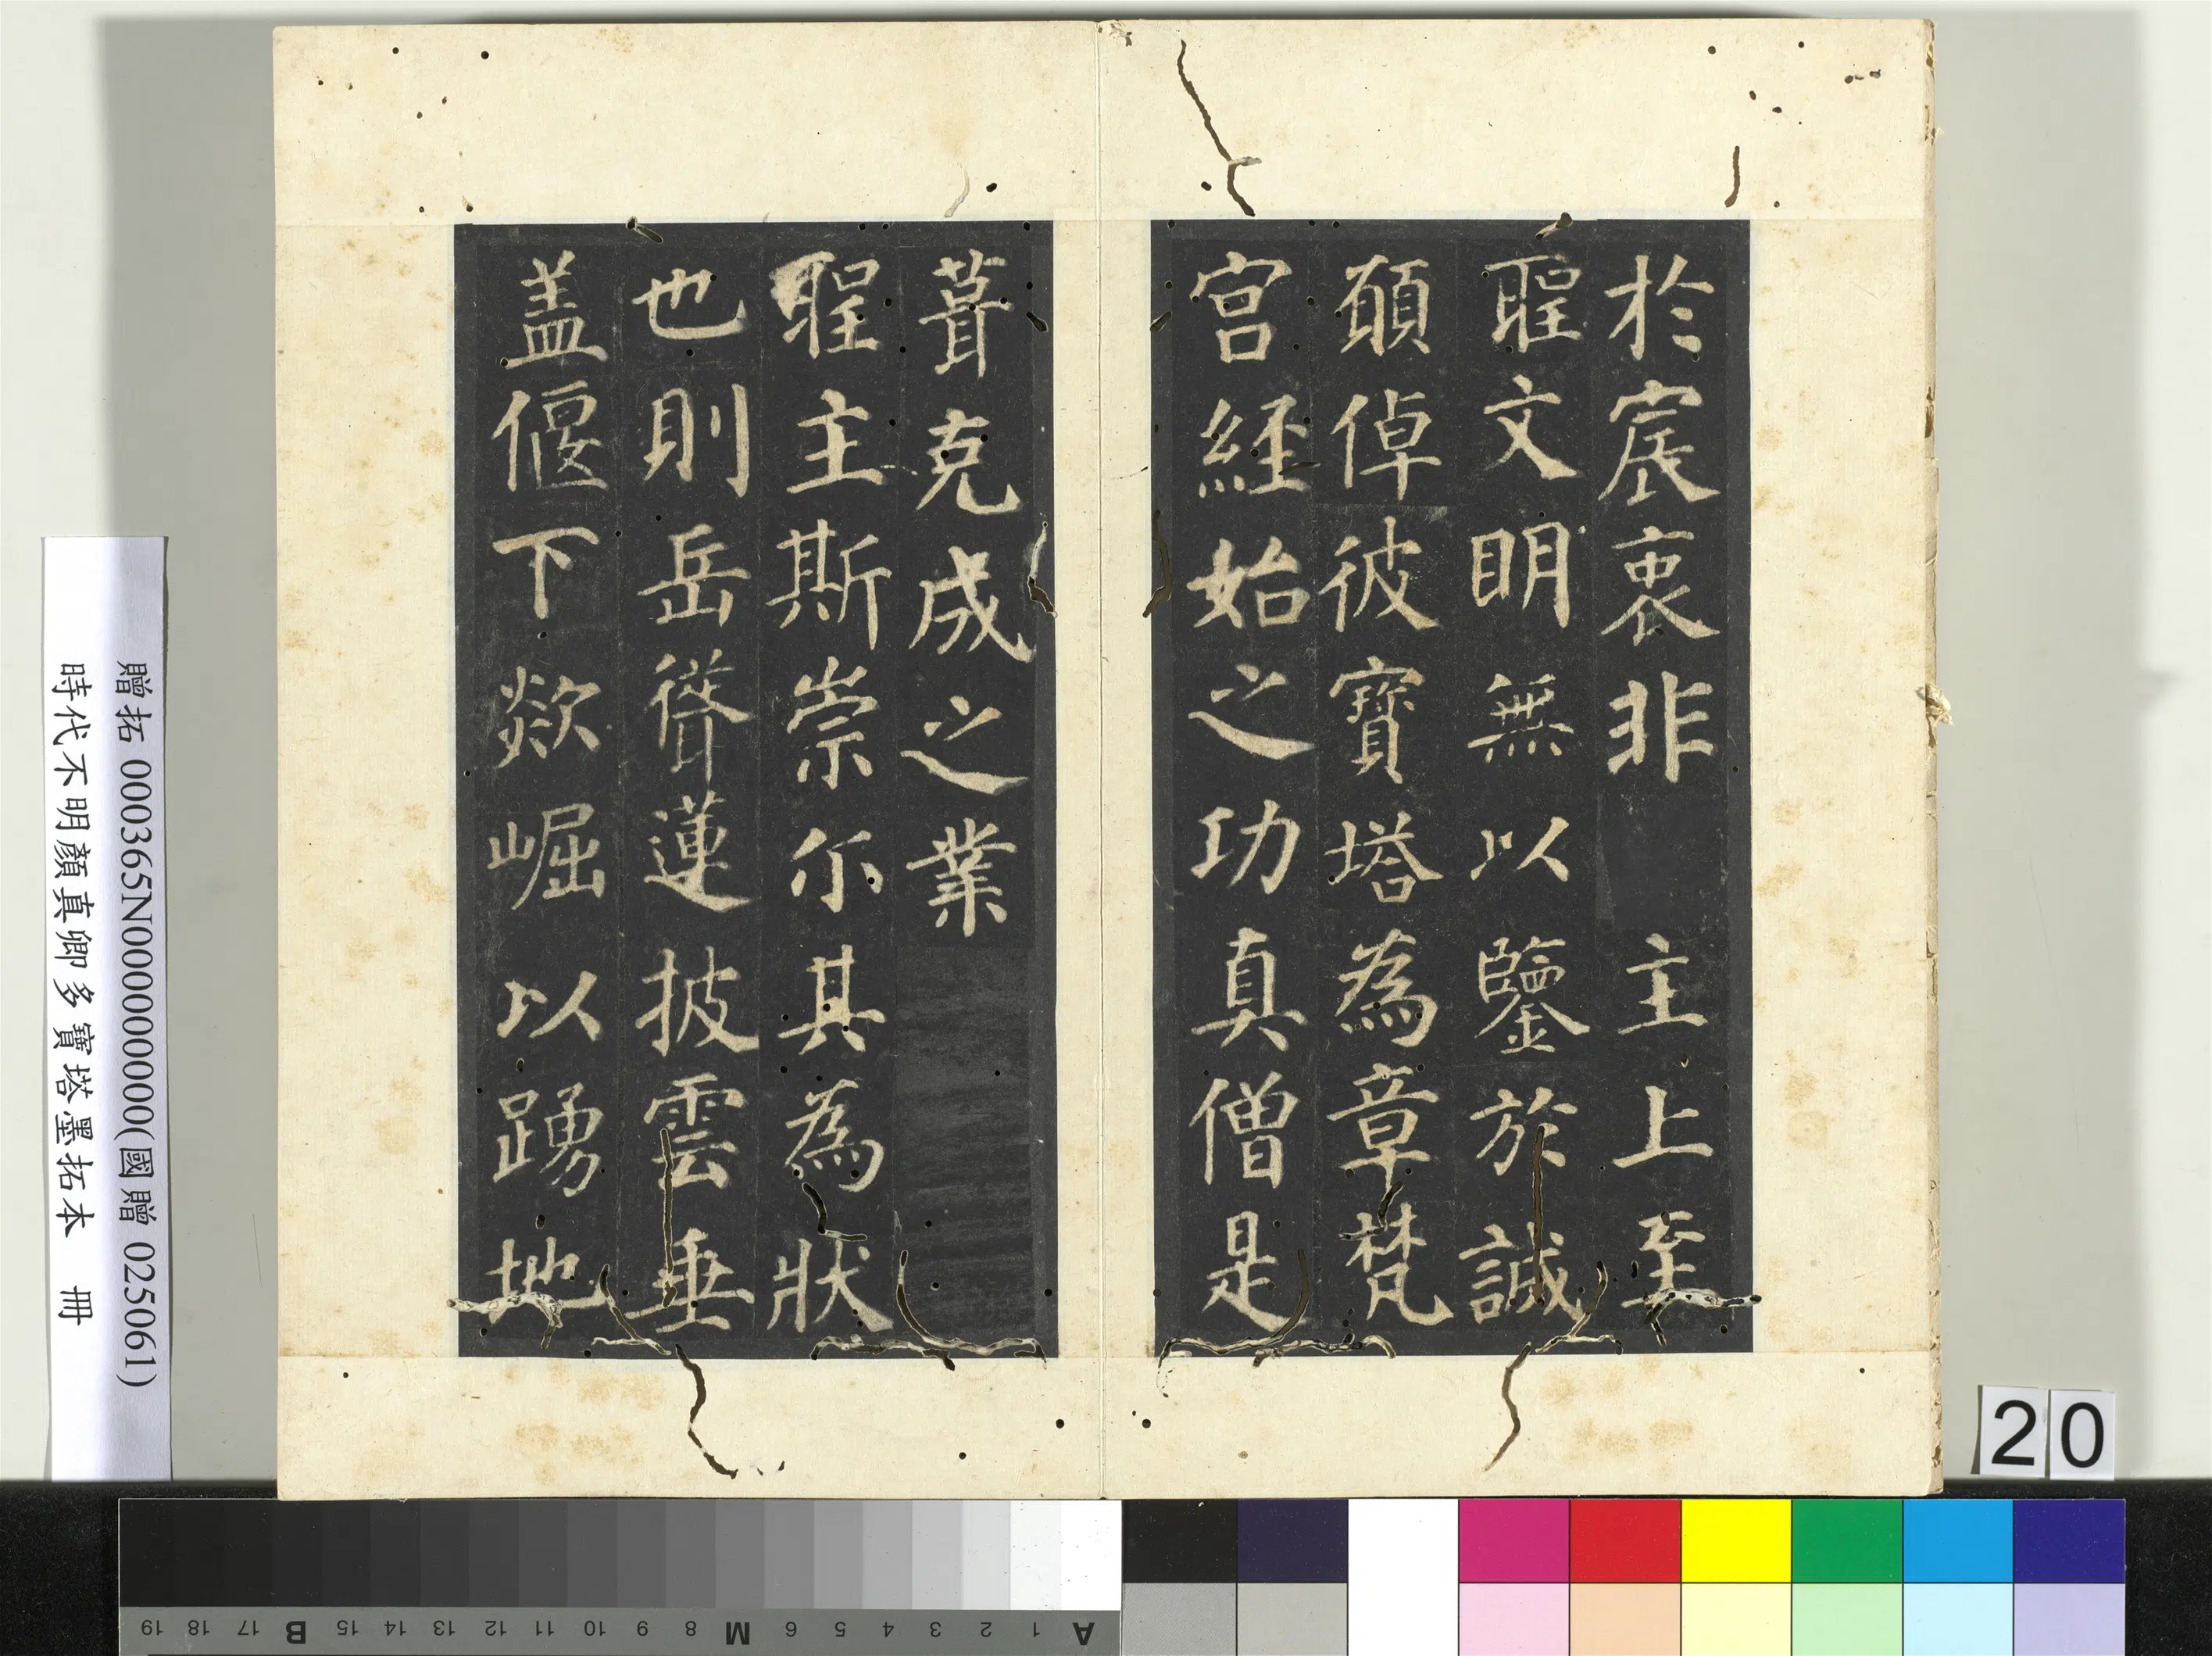 於宸衷非　主上至
聖文明無以鑒於誠
願倬彼寶塔為章梵
宮經始之功真僧是
葺克成之業
聖主斯崇尓其為狀
也則岳聳蓮披雲垂
盖偃下欻崛以踴地
贈拓 000365N000000000(國贈 025061)
時代不明顏真卿多寶塔墨拓本　冊
20
A 1 2 3 4 5 6 M 8 9 10 11 12 13 14 15 B 17 18 19